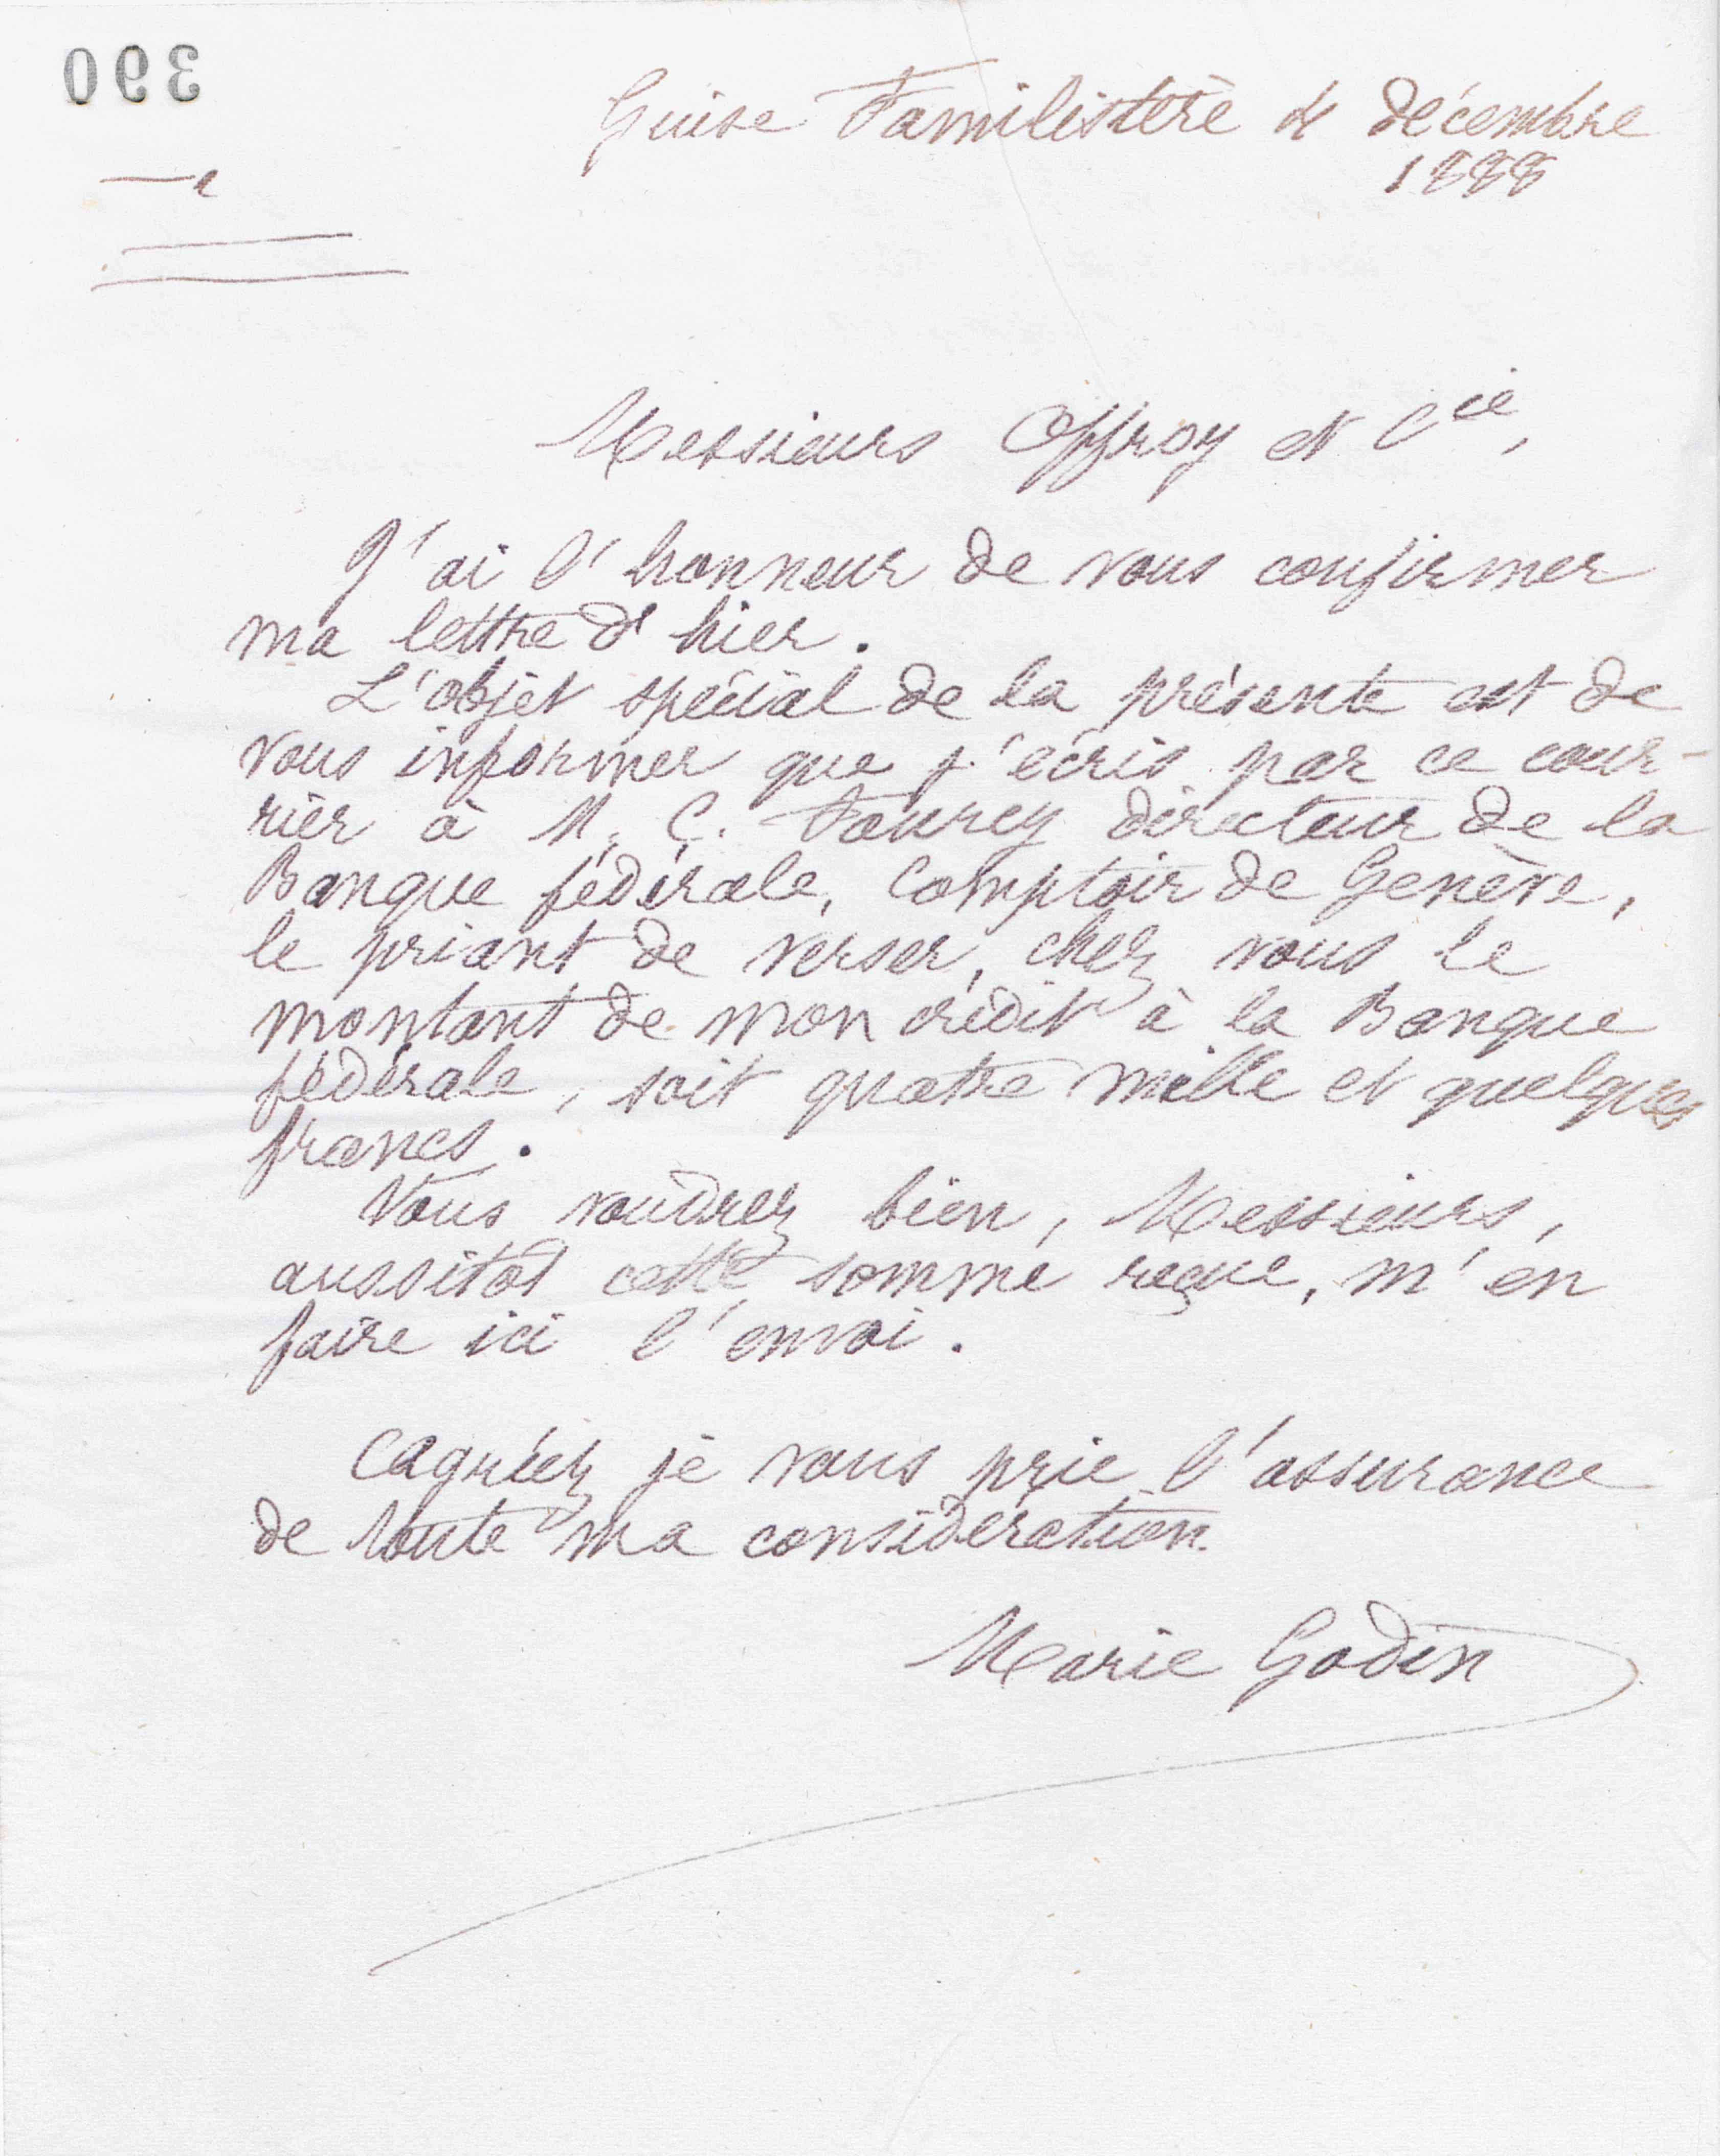 390
Guise Familistère 4 décembre
1888
Messieurs Offroy et Cie,
J'ai l'honneur de vous confirmer
ma lettre d'hier.
L'objet spécial de la présente est de
vous informer que j'écris par ce cour-
rier à M. C. Fourcy directeur de la
Banque fédérale, Comptoir de Genève,
le priant de verser, chez vous le
montant de mon crédit à la Banque
fédérale, soit quatre mille et quelques
francs.
Vous voudrez bien, Messieurs,
aussitôt cette somme reçue, m'en
faire ici l'envoi.
Agréez je vous prie l'assurance
de toute ma considération.
Marie Godin